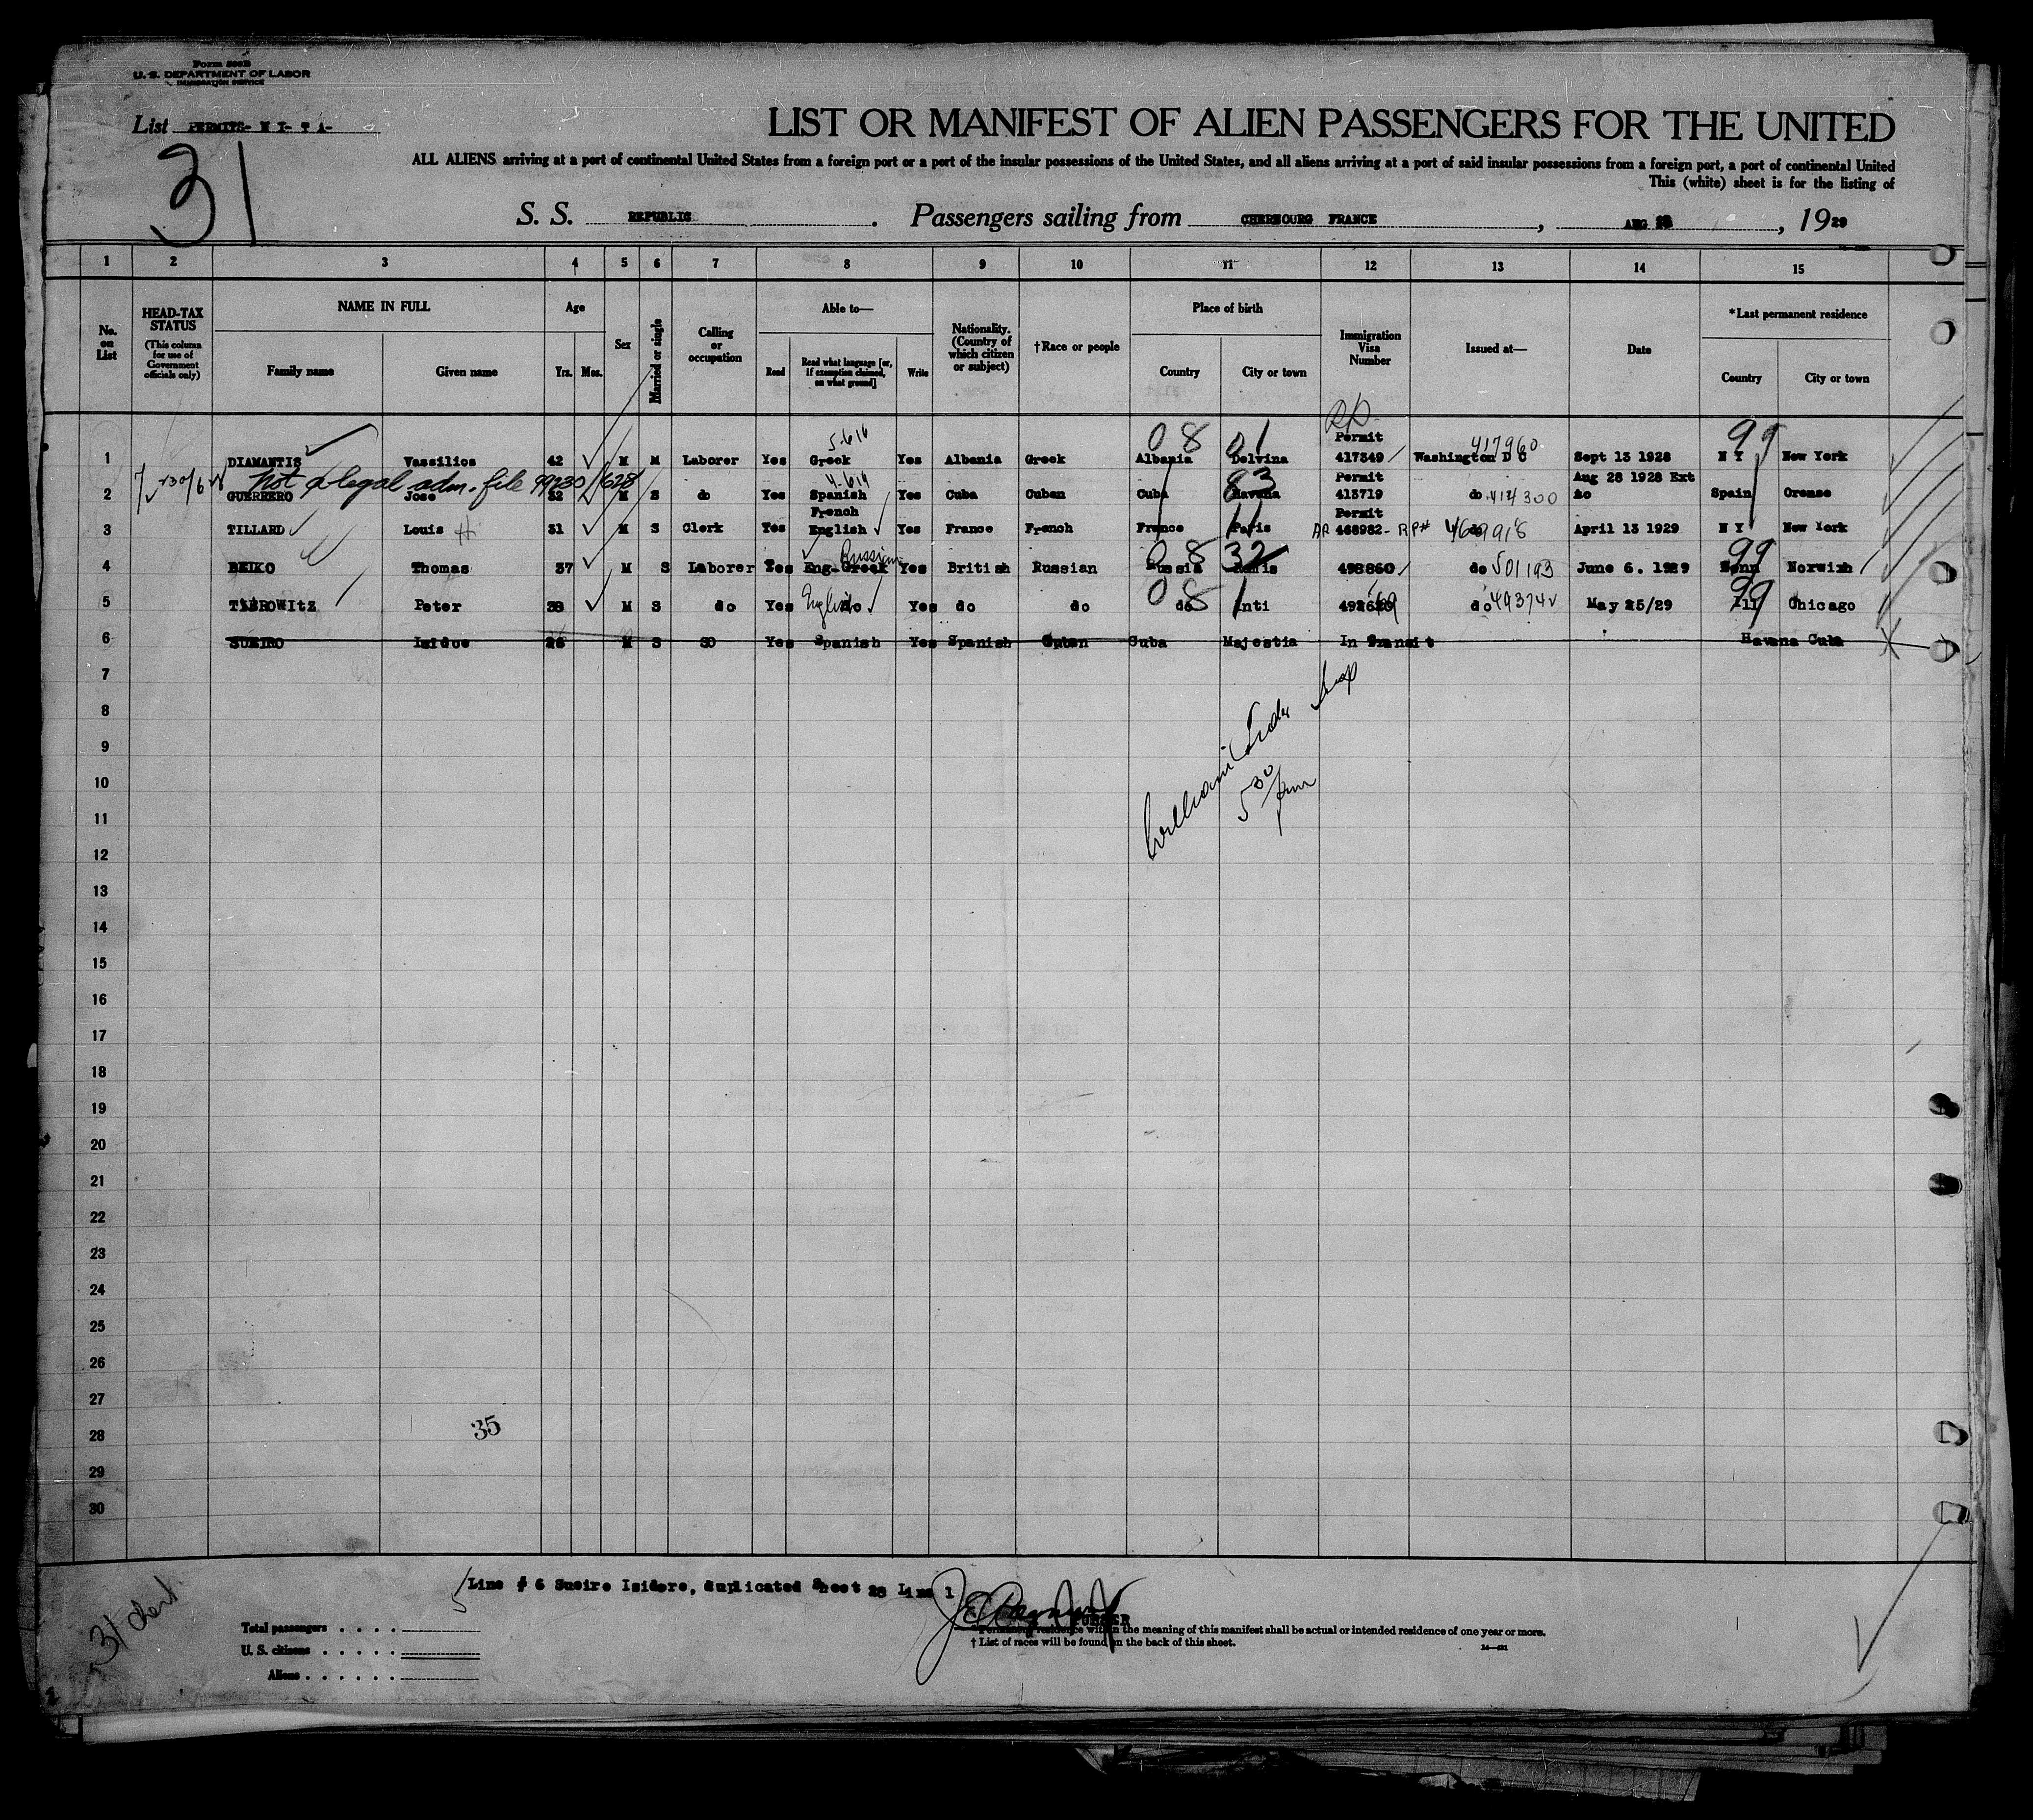 Form 500B
U. S. DEPARTMENT OF LABOR
IMMIGRATION SERVICE
List PERMITS- N Y- T A-
31
LIST OR MANIFEST OF ALIEN PASSENGERS FOR THE UNITED
ALL ALIENS arriving at a port of continental United States from a foreign port or a port of the insular possessions of the United States, and all aliens arriving at a port of said insular possessions from a foreign port, a port of continental United
This (white) sheet is for the listing of
S. S. REPUBLIC. Passengers sailing from CHERBOURG FRANCE, AUG 28, 1929
1 2 3 4 5 6 7 8 9 10 11 12 13 14 15
No. on List
HEAD-TAX STATUS (This column for use of Government officials only)
NAME IN FULL
Family name Given name
Age
Yrs. Mos.
Sex
Married or single
Calling or occupation
Able to—
Read Read what language [or, if exemption claimed, on what ground] Write
Nationality. (Country of which citizen or subject)
†Race or people
Place of birth
Country City or town
Immigration Visa Number
Issued at—
Date
*Last permanent residence
Country City or town
5-616 08 01 Permit 417960 99
1 DIAMANTIS Vassilios 42 M M Laborer Yes Greek Yes Albania Greek Albania Delvina 417549 Washington D C Sept 13 1928 N Y New York
not a legal adm. file 99230/628
4-614 83 Permit Aug 28 1928 Ext
2 GUERRERO Jose 32 M S do Yes Spanish Yes Cuba Cuban Cuba Havana 413719 do 414300 do Spain Orense
French 11 Permit
3 TILLARD Louis H 31 M S Clerk Yes English Yes France French France Paris 468982 - RP# 469918 April 13 1929 N Y New York
Russian 08 32 99
4 BEIKO Thomas 37 M S Laborer Yes Eng-Greek Yes British Russian Russia 498860 do 501193 June 6. 1929 Conn Norwixh
English 08 1 99
5 TABROWITZ Peter 38 M S do Yes do Yes do do do Inti do 49374 May 25/29 Ill Chicago
6 SUEIRO Isidoe 26 M S SO Yes Spanish Yes Spanish Cuban Cuba Majestia In Transit Havana Cuba
7
8
9
William
5 30 pm
10
11
12
13
14
15
16
17
18
19
20
21
22
23
24
25
26
27
28
29
30
35
Line # 6 Sueiro Isidore, duplicated Sheet 28 Line 1
PURSER
31
Total passengers
U. S. citizens
Aliens
* Permanent residence within the meaning of this manifest shall be actual or intended residence of one year or more.
† List of races will be found on the back of this sheet.